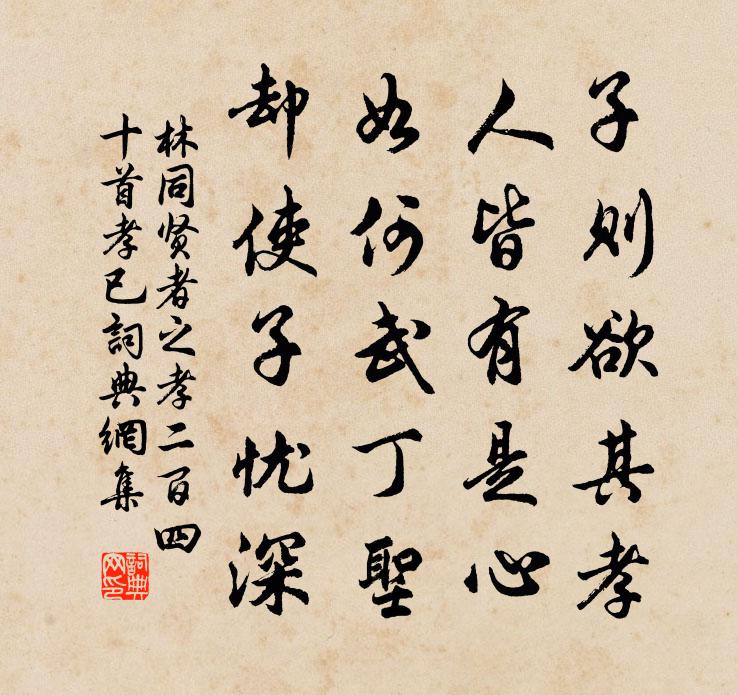 子则欲其孝
人皆有是心
如何武丁聖
却使子忧深
林同贤者之孝二百四
十首孝已詞典網集
詞典
网印